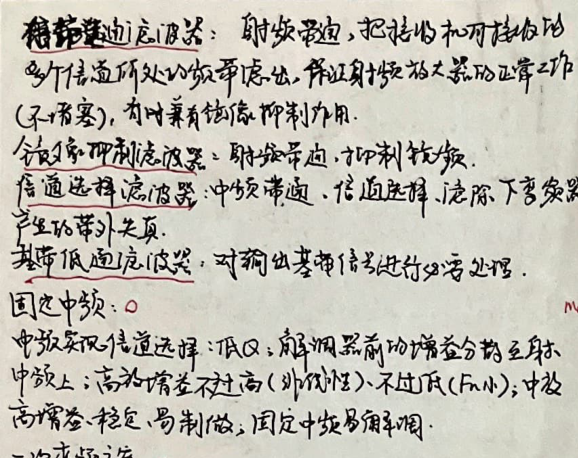 频带通滤波器：射频带通，把接收机可接收的
多个信道所处的频带滤出，保证射频放大器的正常工作
(不堵塞)，有时兼有镜像抑制作用.
镜像抑制滤波器：射频带通，抑制镜频.
信道选择滤波器：中频带通、信道选择、滤除下变频器
产生的带外失真.
基带低通滤波器：对输出基带信号进行必要处理.
固定中频：
中频实现信道选择：低Q；解调器前的增益分散至射
中频上；高放增益不过高(非线性)、不过低(Fn小)；中放
高增益、稳定、易制做；固定中频易解调.